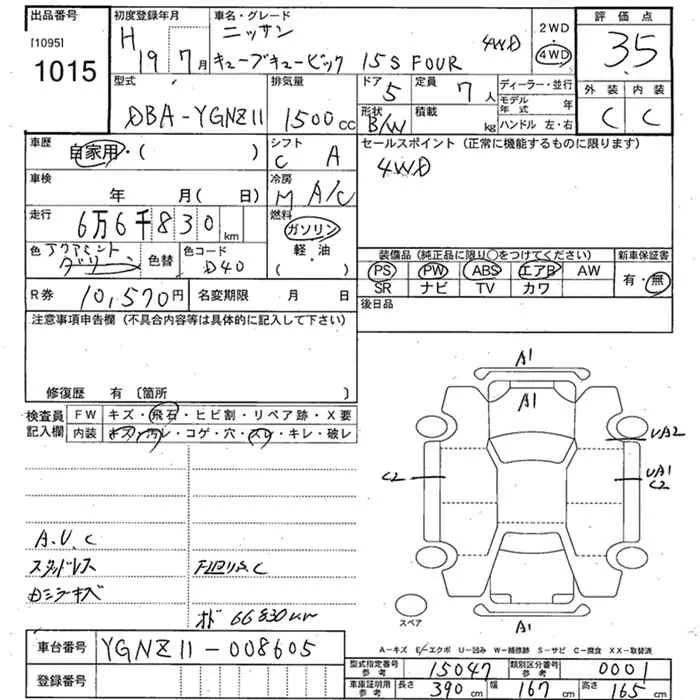 出品番号 初度登録年月 車名・グレード 2WD 評価点
[1095] H 19年 7月 ニッサン 4WD 3.5
1015 キューブキュービック 15S FOUR 4WD
外装 内装
型式 排気量 ドア 定員 ディーラー・並行
C C
DBA-YGNZ11 1500cc 5 7人 モデル年式 年
形状 積載 kg ハンドル 左・右
B/W
車歴 自家用・( ) シフト C A セールスポイント (正常に機能するものに限ります)
4WD
車検 年 月( 日) 冷房 M A/C
走行 6万6千830km 燃料 ガソリン
軽・油
( )
色 色替 色コード D40
装備品 (純正品に限り○をつけてください) 新車保証書
PS PW ABS エアB AW 有・無
SR ナビ TV カワ
R券 10,570円 名変期限 月 日 後日品
注意事項申告欄 (不具合内容等は具体的に記入して下さい)
修復歴 有 〔箇所 〕
検査員 FW キズ・飛石・ヒビ割・リペア跡・X要
記入欄 内装 キズ・汚レ・コゲ・穴・スレ・キレ・破レ
A1
A1
UA2
C2
UA1
C2
A.U.C
スタッドレス
スペア
オド 66830km
A1
A-キズ E-エクボ U-凹み W-補修跡 S-サビ C-腐食 XX-取替済
車台番号 YGNZ11-008605
型式指定番号 参考 15047 類別区分番号 参考 0001
登録番号
車庫証明用 参考 長さ 390cm 幅 167cm 高さ 165cm